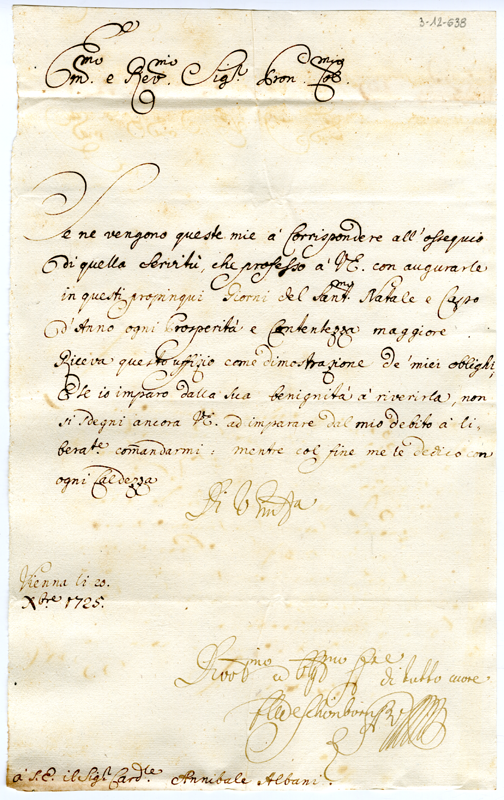 3-12-638
Em.mo e Rev.mo Sig.r Pron. Col.mo
Se ne vengono queste mie à Corrispondere all'ossequio
di quella Servitù, che professo à V.E. con augurarle
in questi propinqui Giorni del Sant.mo Natale e Capo
d'Anno ogni Prosperità e Contentezza maggiore
Riceva questo uffizio come dimostrazione de' miei oblighi,
E se io imparo dalla sua benignità à riverirla, non
si sdegni ancora V.E. ad imparare dal mio debito à li,,
berate. comandarmi; mentre col fine me le dedico con
ogni Caldezza
Di V. Em.za
Vienna li 20.
Xbre 1725.
Devot.mo ed di tutto cuore
de Schönborn
à S.E. il Sig.r Card.le Annibale Albani.